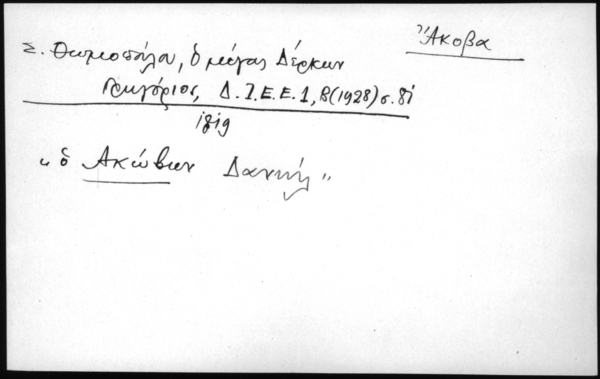 Ἄκοβα
Σ. Θωμοπούλου, ὁ μέγας Δέρκων
Γρηγόριος, Δ.Ι.Ε.Ε. 1, Β(1928) σ. 81
ἰδίᾳ
"ὁ Ἀκώβων Δανιήλ"